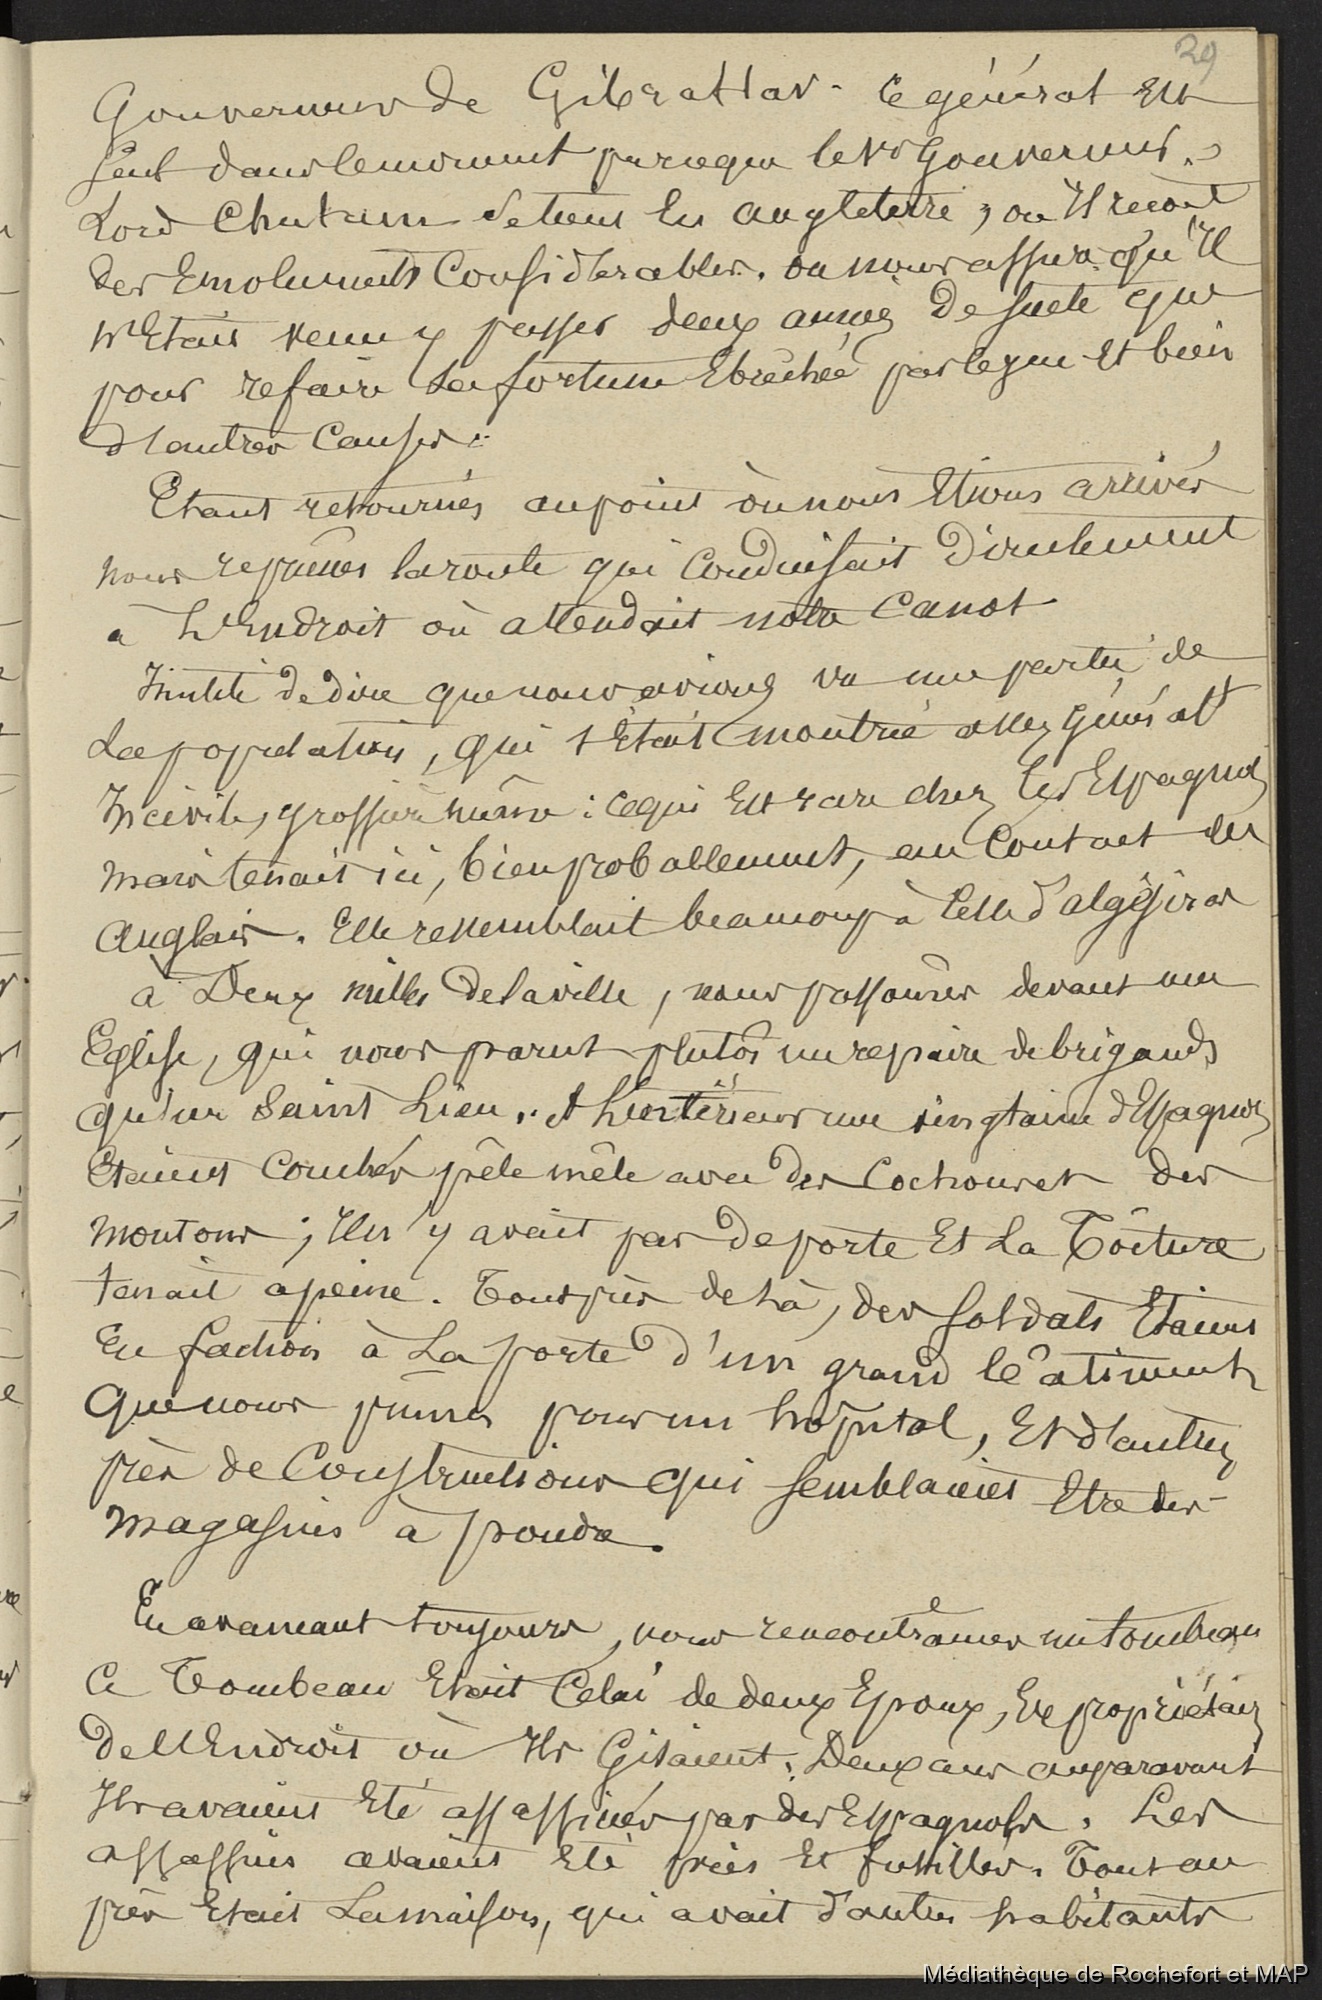 29
Gouverneur de Gibrattar. Ce général Est
Seul dans le moment parceque le vr Gouverneur.
Lord Chatam se tient En angleterre, ou Il reçoit
des Emoluments Considérables. on nous assura qu'Il
n'Etait venu y passer deux années De suete que
pour refaire Sa fortune Ebréchée par le jeu Et bien
d'autres Causes.
Etant retournés au point où nous Etions arrivés
nous reprîmes la route qui Conduisait Directement
à L'Endroit où attendait notre Canot
Inutile De dire que nous avions vu une partie de
La population, qui s'Etait montrée assez Généralt
Incivile, grossière même: Ce qui Est rare chez les Espagnols
mais tenait ici, bien probablement, au Contact des
Anglais. Elle ressemblait beaucoup à Celle d'algésiras
à Deux milles De la ville, nous passâmes devant une
Eglise, qui nous parut plutôt un repaire de brigands
qu'un Saint Lieu. A L'intérieur une vingtaine d'Espagnols
Etaient Couchés pêle mêle avec Des Cochons et des
moutons; Il n'y avait pas De porte Et La Toiture
tenait a peine. Tout près de Là, des Soldats Etaient
En faction à La porte d'un grand bâtiment
Que nous prîmes pour un hôpital, Et d'autres
près de Constructions qui semblaient Etre des
magasins à poudre.
En avancant toujours, nous rencontrâmes un tombeau
Ce Tombeau Etait Celui de deux Epoux, Ex propriétaires
De L'Endroit où Ils Gisaient. Deux ans auparavant
Ils avaient Eté assassinés par des Espagnols. Les
assassins avaient Eté pris Et fusillés. Tout au
près Etait La maison, qui avait d'autres habitants
Médiathèque de Rochefort et MAP